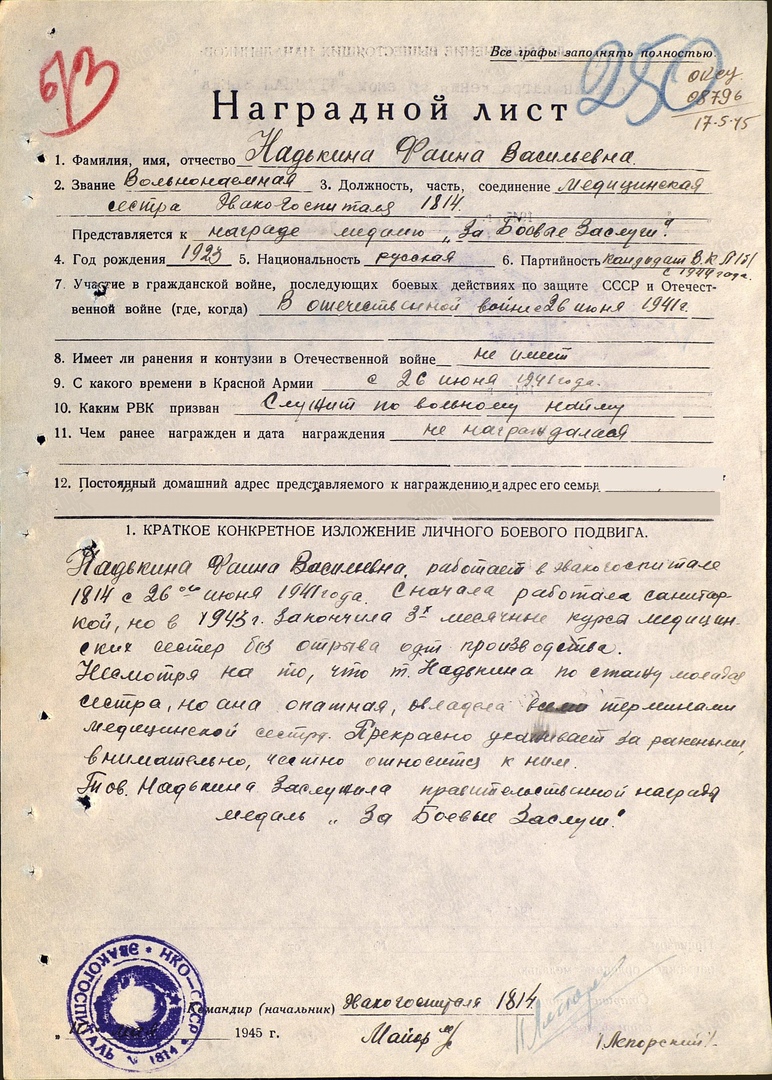 Все графы заполнять полностью
613
250
08796
17-5-45
Наградной лист
1. Фамилия, имя, отчество Надькина Фаина Васильевна
2. Звание Вольнонаемная 3. Должность, часть, соединение медицинская
сестра Эвакогоспиталя 1814.
Представляется к награде медалью „За Боевые Заслуги"
4. Год рождения 1923 5. Национальность русская 6. Партийность кандидат В.К.П(б)
с 1944 года.
7. Участие в гражданской войне, последующих боевых действиях по защите СССР и Отечест-
венной войне (где, когда) В отечественной войне с 26 июня 1941 г.
8. Имеет ли ранения и контузии в Отечественной войне не имеет
9. С какого времени в Красной Армии с 26 июня 1941 года.
10. Каким РВК призван Служит по вольному найму
11. Чем ранее награжден и дата награждения не награждалася
12. Постоянный домашний адрес представляемого к награждению и адрес его семьи
1. КРАТКОЕ КОНКРЕТНОЕ ИЗЛОЖЕНИЕ ЛИЧНОГО БОЕВОГО ПОДВИГА.
Надькина Фаина Васильевна, работает в эвакогоспитале
1814 с 26го июня 1941 года. Сначала работала санитар-
кой, но в 1943 г. закончила 3х месячные курсы медицин-
ских сестер без отрыва от производства.
Несмотря на то, что т. Надькина по стажу молодая
сестра, но она опатная, овладела всеми терминами
медицинской сестры. Прекрасно ухаживает за ранеными,
внимательно, честно относится к ним.
Тов. Надькина Заслужила правительственной награды
медаль „За Боевые Заслуги"
Командир (начальник) Эвакогоспиталя 1814
1945 г. Майор м/с /Лепорский/.
НКО-СССР * ЭВАКОГОСПИТАЛЬ № 1814 *